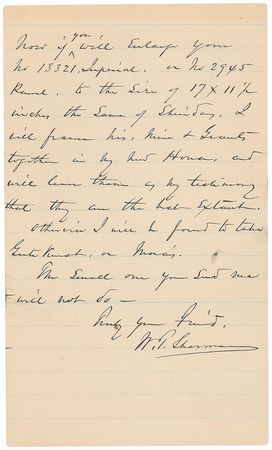 Now if you will Enlarge your
No 13321, Imperial, or No 2945
to the Size of 17 X 11 1/2
inches, the Same of Sheridan, I
will frame his, mine & Grants
together in my new House, and
will leave them as my testimony
that they are the best Extant.
Otherwise I will be forced to take
Gutekunst, or Mora's.
The Small one you Send me
will not do —
Truly your Friend,
W. T. Sherman